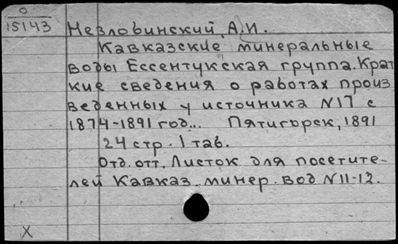 0
15143
Незловинский, А.И.
Кавказские минеральные
воды Ессентукская группа. Крат
кие сведения о работах произ
веденных у источника N17 с
1874-1891 год... Пятигорск, 1891
24 стр. 1 таб.
Отд. отт. Листок для посетите-
лей Кавказ. минер. вод N11-12.
X